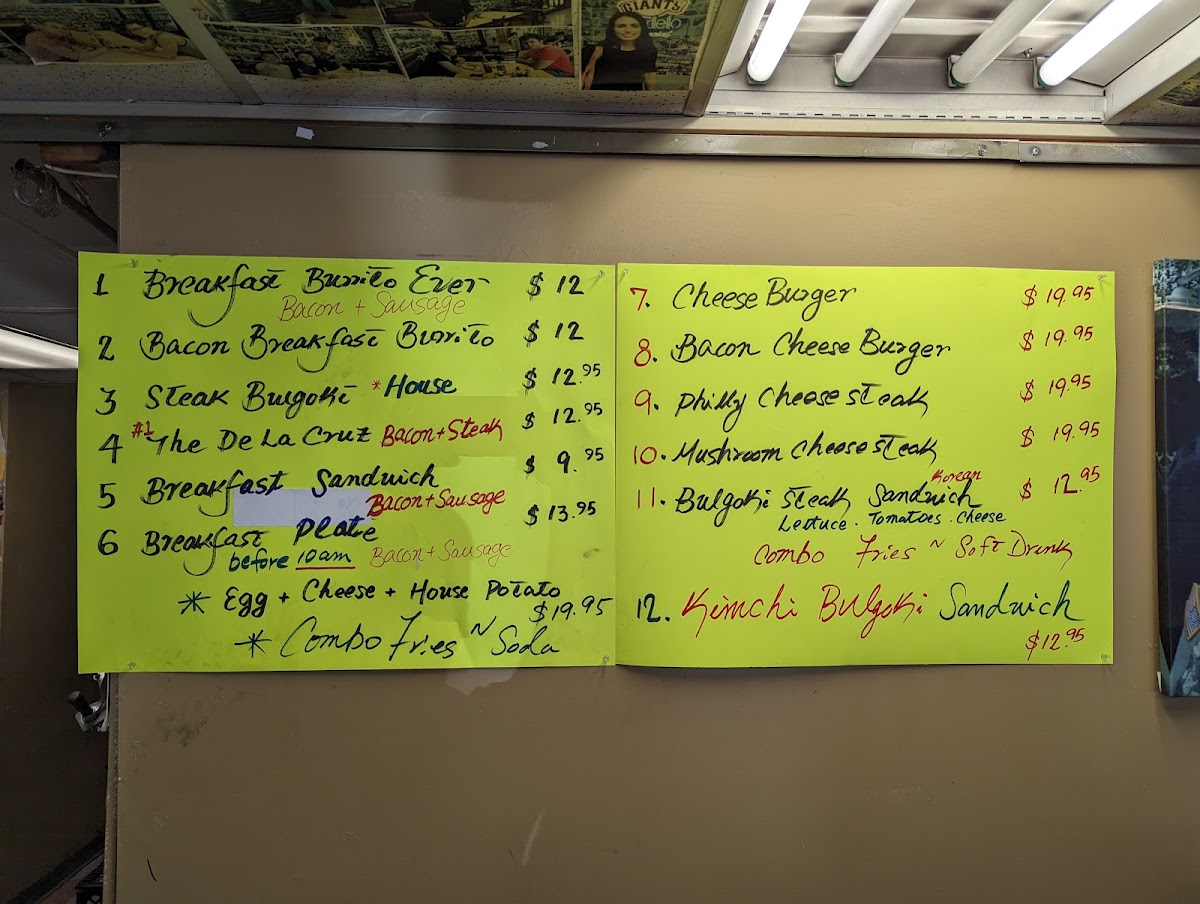 GIANTS
1 Breakfast Burrito Ever $ 12
Bacon + Sausage
2 Bacon Breakfast Burrito $ 12
3 Steak Bulgoki *House $ 12.95
4 #1 The De La Cruz Bacon + Steak $ 12.95
5 Breakfast Sandwich $ 9.95
Bacon + Sausage
6 Breakfast Plate $ 13.95
before 10am Bacon + Sausage
* Egg + Cheese + House Potato
$19.95
* Combo Fries ~ Soda
7. Cheese Burger $ 19.95
8. Bacon Cheese Burger $ 19.95
9. Philly Cheese steak $ 19.95
10. Mushroom Cheese steak $ 19.95
Korean
11. Bulgoki steak Sandwich $ 12.95
Lettuce . Tomatoes . Cheese
Combo Fries ~ Soft Drink
12. Kimchi Bulgoki Sandwich
$12.95